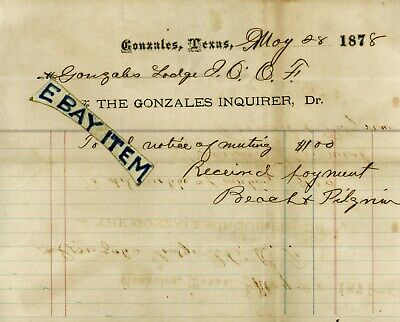 Gonzales, Texas, May 28 1878
Gonzales Lodge I. O. O. F.
THE GONZALES INQUIRER, Dr.
E BAY ITEM
To notice of meeting $1 00
Received payment
Beach & Pilgrim